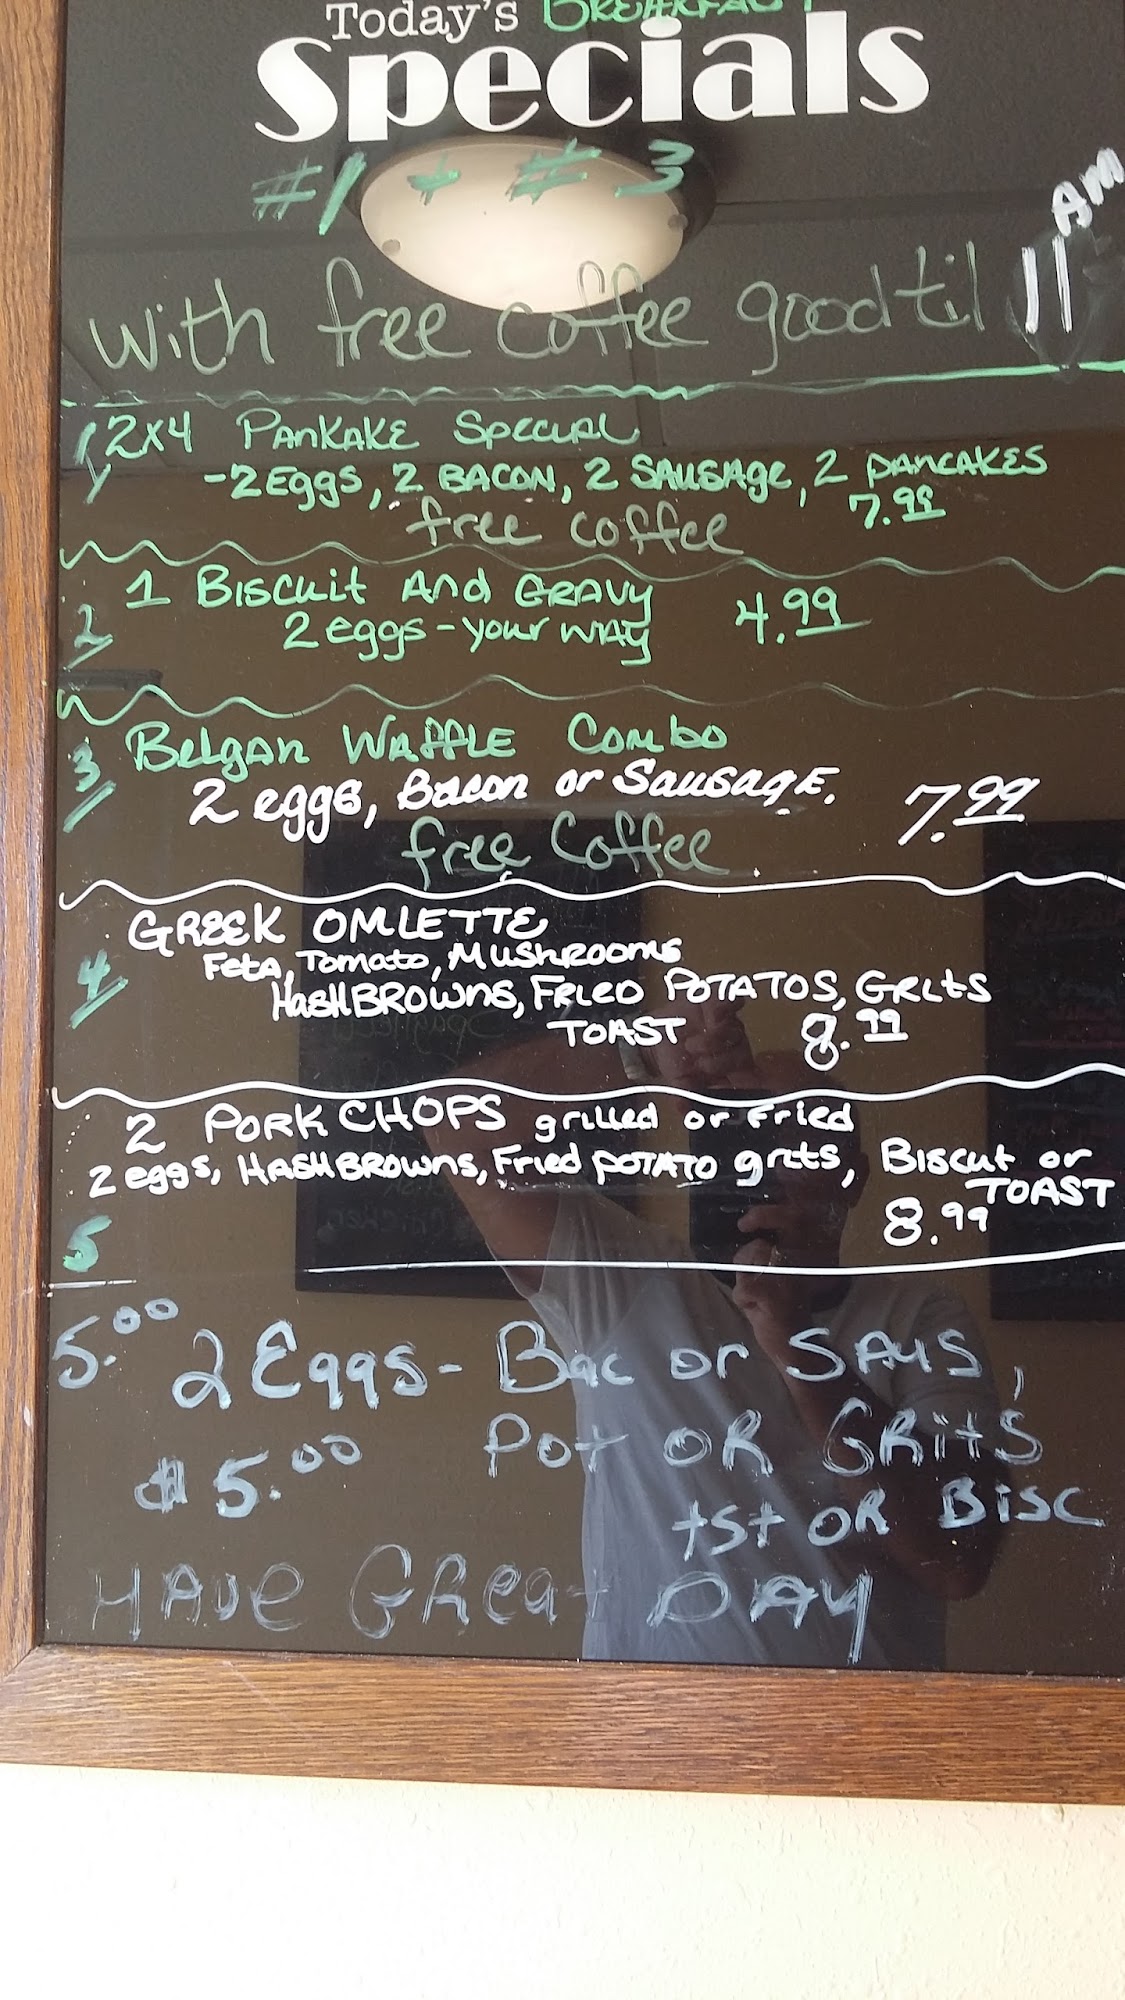 Today's BREAKFAST
Specials
#1 + #3
with free coffee good til 11 AM
1 2x4 PANKAKE SPECIAL
-2 Eggs, 2 BACON, 2 SAUSAGE, 2 PANCAKES
7.99
free coffee
2 1 BISCUIT AND GRAVY 4.99
2 eggs - your WAY
3 Belgan WAFFLE COMBO
2 eggs, Bacon or SAUSAGE. 7.99
free Coffee
4 GREEK OMLETTE
FETA, Tomato, MUSHROOMS
HASHBROWNS, FRIED POTATOS, GRITS
TOAST 8.99
2 PORK CHOPS grilled or Fried
2 eggs, HASHBROWNS, Fried POTATO grits, Biscut or
TOAST
5 8.99
5.00 2 Eggs - Bac or SAUS,
$5.00 Pot OR GRitS
tst OR BISC
HAVE GReat DAY